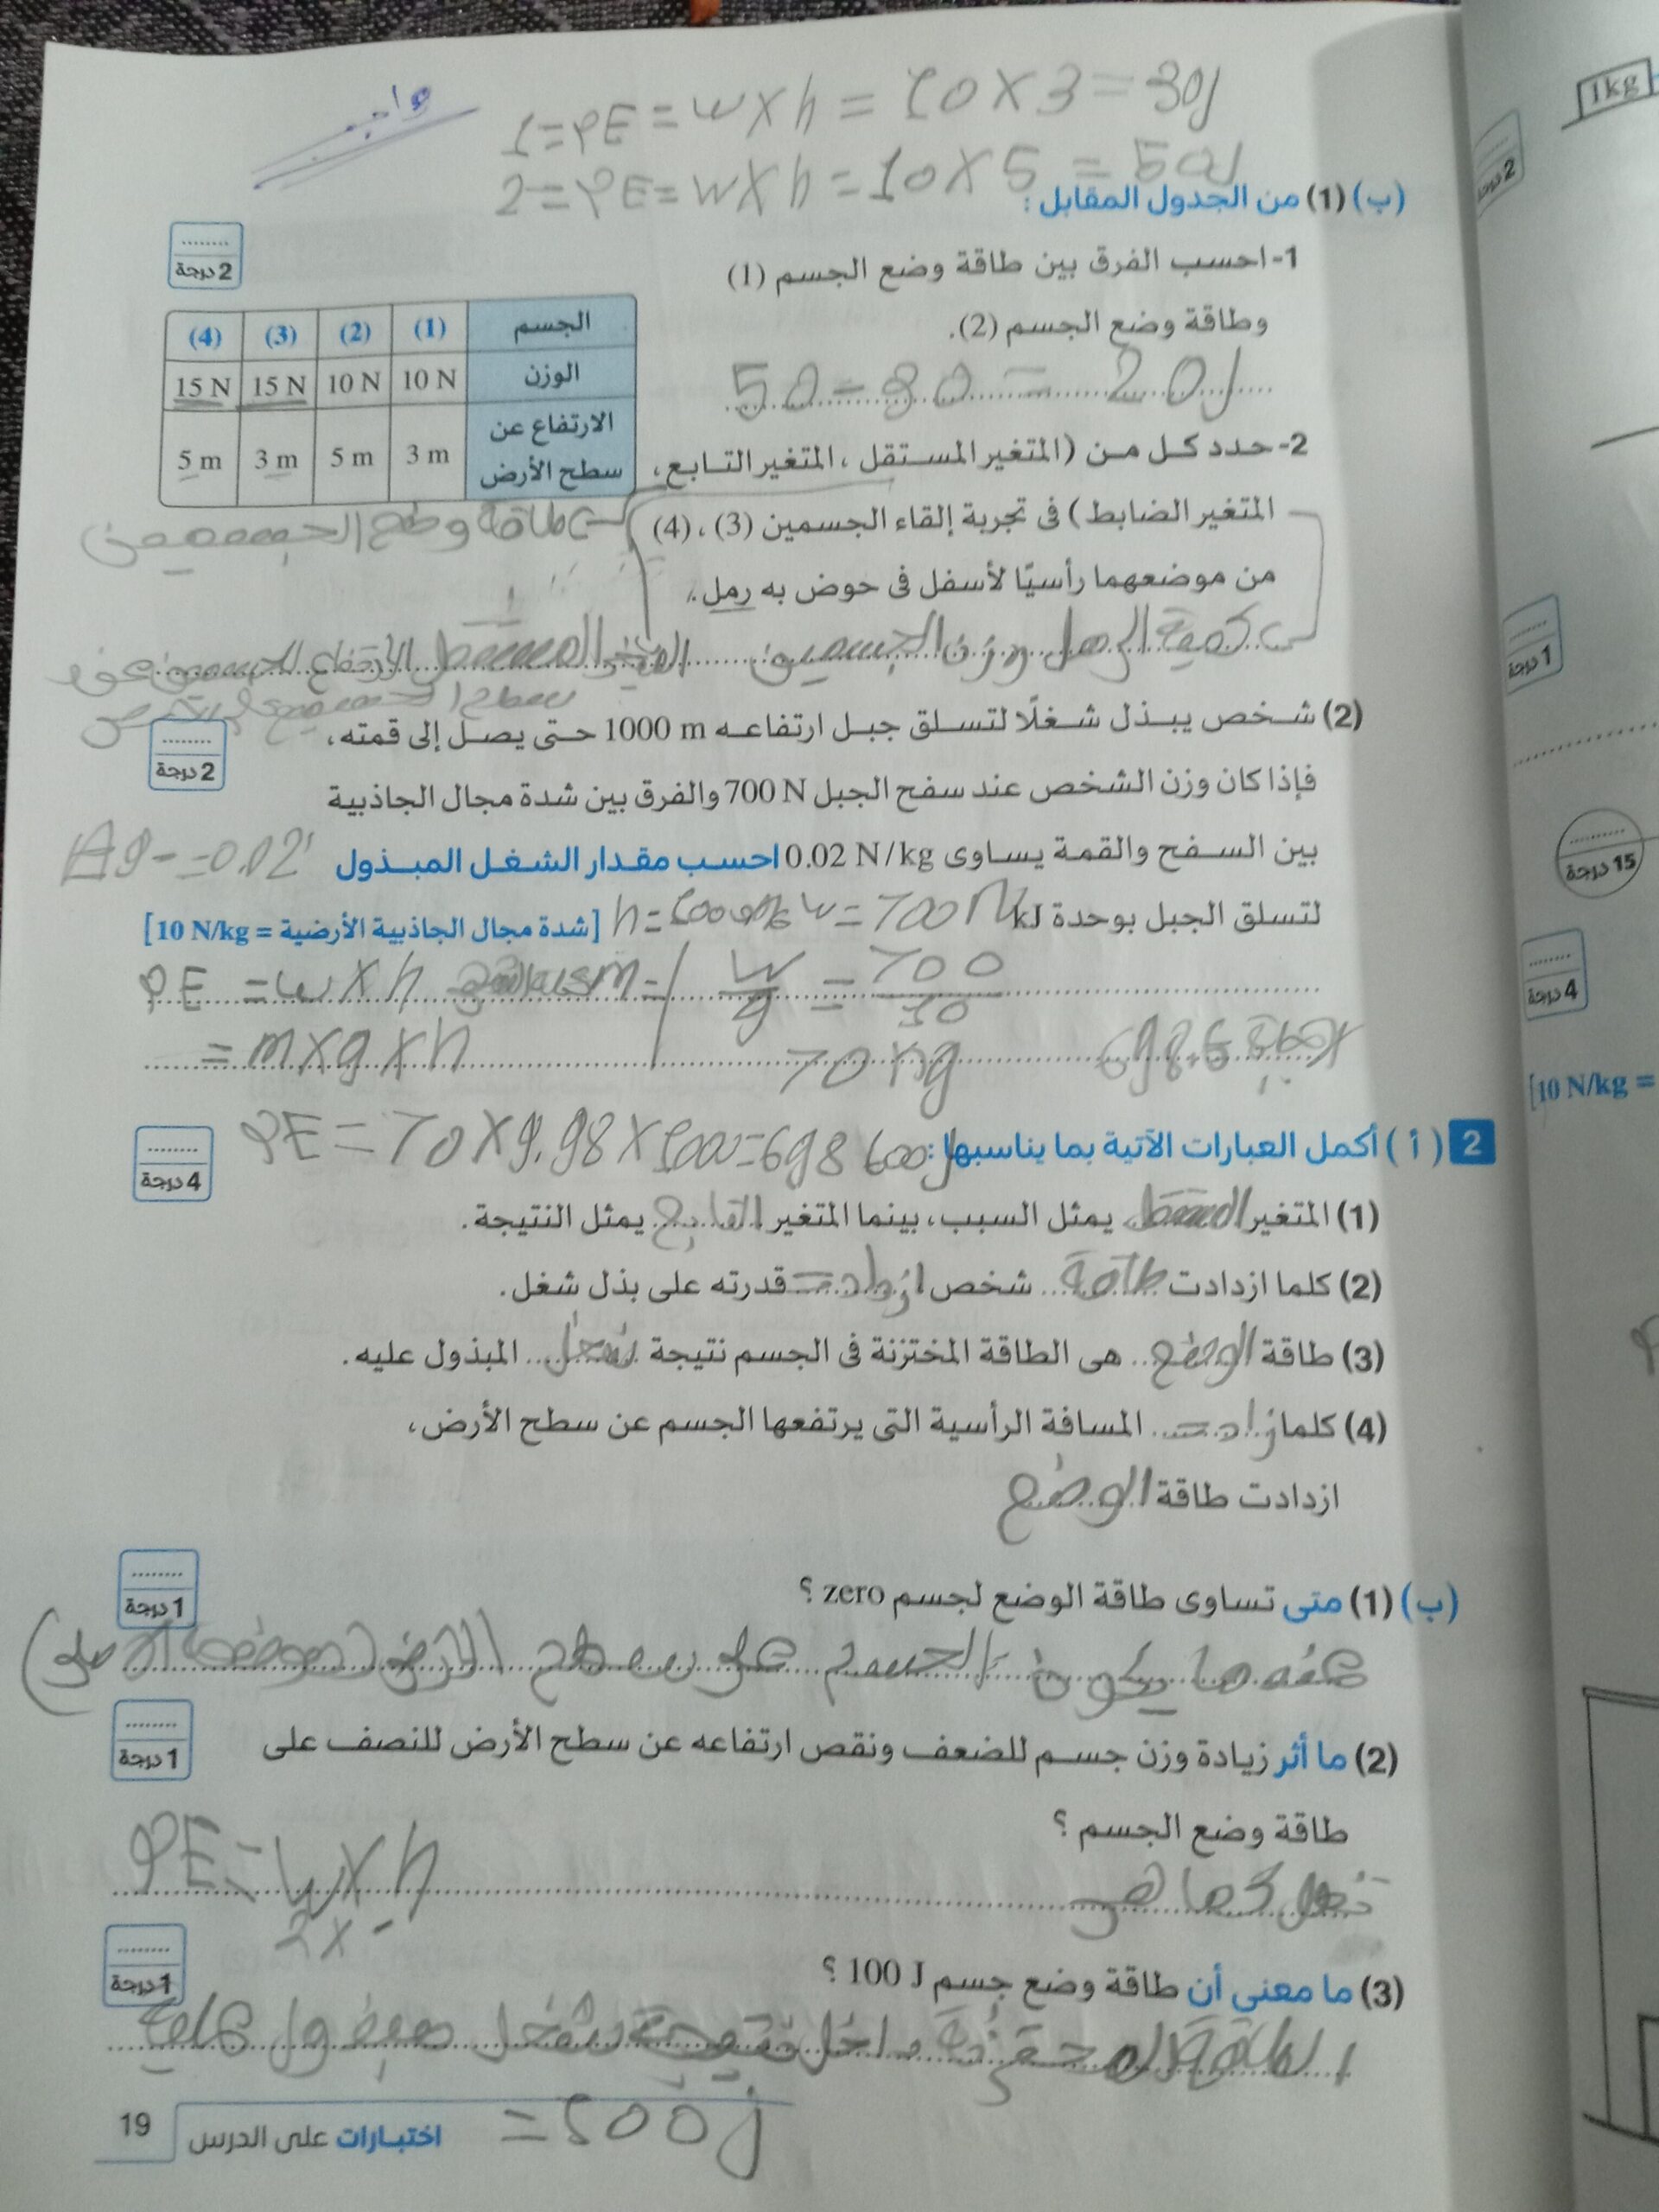 واجب
1 = PE = w X h = 10 X 3 = 30J
2 = PE = w X h = 10 X 5 = 50J
(ب) (1) من الجدول المقابل :
1- احسب الفرق بين طاقة وضع الجسم (1)
وطاقة وضع الجسم (2).
50 - 30 = 20J
........
2 درجة
الجسم (1) (2) (3) (4)
الوزن 10 N 10 N 15 N 15 N
الارتفاع عن سطح الأرض 3 m 5 m 3 m 5 m
2- حدد كل من (المتغير المستقل ، المتغير التابع ،
المتغير الضابط) فى تجربة إلقاء الجسمين (3) ، (4)
طاقة وضع الجسمين
من موضعهما رأسيًا لأسفل فى حوض به رمل .
كمية الرمل وزن الجسمين المتغير المستقل
(2) شخص يبذل شغلًا لتسلق جبل ارتفاعه 1000 m حتى يصل إلى قمته ،
........
2 درجة
فإذا كان وزن الشخص عند سفح الجبل 700 N والفرق بين شدة مجال الجاذبية
بين السفح والقمة يساوى 0.02 N/kg احسب مقدار الشغل المبذول
لتسلق الجبل بوحدة kJ
w = 700 N
[شدة مجال الجاذبية الأرضية = 10 N/kg]
PE = w X h m = w/g = 700/10
= m X g X h 70 Kg
PE = 70 X 9.98 X 1000 = 698 600 J
2 ( أ ) أكمل العبارات الآتية بما يناسبها :
........
4 درجة
(1) المتغير المستقل يمثل السبب ، بينما المتغير التابع يمثل النتيجة .
(2) كلما ازدادت طاقة شخص ازدادت قدرته على بذل شغل .
(3) طاقة الوضع هى الطاقة المختزنة فى الجسم نتيجة شغل المبذول عليه .
(4) كلما زادت المسافة الرأسية التى يرتفعها الجسم عن سطح الأرض ،
ازدادت طاقة الوضع
(ب) (1) متى تساوى طاقة الوضع لجسم zero ؟
........
1 درجة
عندما يكون الجسم على سطح الأرض
(2) ما أثر زيادة وزن جسم للضعف ونقص ارتفاعه عن سطح الأرض للنصف على
........
1 درجة
طاقة وضع الجسم ؟
تظل كما هى PE = w X h
(3) ما معنى أن طاقة وضع جسم 100 J ؟
........
1 درجة
الطاقة المختزنة داخل نتيجة شغل مبذول عليه
= 100 J
اختبارات على الدرس
19
1 kg
2 درجة
1 درجة
15 درجة
4 درجة
[10 N/kg =